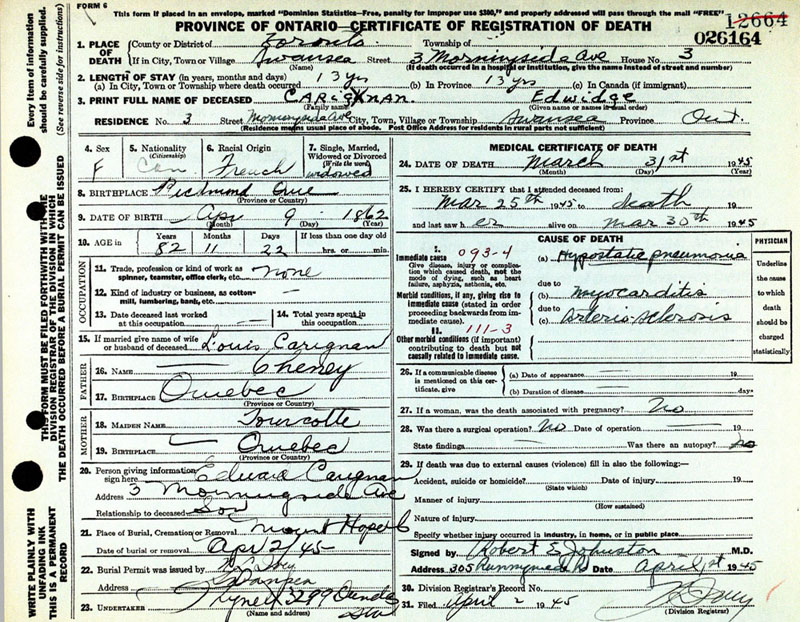 FORM 6
This form if placed in an envelope, marked "Dominion Statistics—Free, penalty for improper use $300," and properly addressed will pass through the mail "FREE."
12664
026164
PROVINCE OF ONTARIO—CERTIFICATE OF REGISTRATION OF DEATH
1. PLACE OF DEATH County or District of Toronto Township of
If in City, Town or Village Swansea Street 3 Morningside Ave House No. 3
(Name) (If death occurred in a hospital or institution, give the name instead of street and number)
2. LENGTH OF STAY (in years, months and days)
(a) In City, Town or Township where death occurred 13 yrs (b) In Province 13 yrs (c) In Canada (if immigrant)
3. PRINT FULL NAME OF DECEASED CARIGNAN. Edwidge
(Family name) (Given name or names in usual order)
RESIDENCE No. 3 Street Morningside Ave City, Town, Village or Township Swansea Province Ont.
(Residence means usual place of abode. Post Office Address for residents in rural parts not sufficient)
4. Sex F
5. Nationality (Citizenship) Can
6. Racial Origin French
7. Single, Married, Widowed or Divorced (Write the word) widowed
8. BIRTHPLACE Richmond Que
(Province or Country)
9. DATE OF BIRTH Apr 9 1862
(Month) (Day) (Year)
10. AGE in Years Months Days If less than one day
82 11 22 hrs. or min.
OCCUPATION
11. Trade, profession or kind of work as spinner, teamster, office clerk, etc. none
12. Kind of industry or business, as cotton-mill, lumbering, bank, etc.
13. Date deceased last worked at this occupation
14. Total years spent in this occupation
15. If married give name of wife or husband of deceased Louis Carignan
FATHER
16. NAME — Cheney
17. BIRTHPLACE Quebec
(Province or Country)
MOTHER
18. MAIDEN NAME Tourcotte
19. BIRTHPLACE — Quebec
(Province or Country)
20. Person giving information sign here Edward Carignan
Address 3 Morningside Ave
Relationship to deceased Son
21. Place of Burial, Cremation or Removal Mount Hope
Date of burial or removal Apr 2/45
22. Burial Permit was issued by
Address Swansea
23. UNDERTAKER Lynett 3299 Dundas
(Name and address) St W
MEDICAL CERTIFICATE OF DEATH
24. DATE OF DEATH March 31st 1945
(Month) (Day) (Year)
25. I HEREBY CERTIFY that I attended deceased from:
Mar 25th 1945 to death
and last saw h er alive on Mar 30th 1945
CAUSE OF DEATH
I. Immediate cause 093-4
Give disease, injury or complication which caused death, not the mode of dying, such as heart failure, asphyxia, asthenia, etc.
(a) Hypostatic pneumonia
due to
Morbid conditions, if any, giving rise to immediate cause (stated in order proceeding backwards from immediate cause).
(b) myocarditis
due to
(c) Arterio-sclerosis
II. 111-3
Other morbid conditions (if important) contributing to death but not causally related to immediate cause.
PHYSICIAN
Underline the cause to which death should be charged statistically.
26. If a communicable disease is mentioned on this certificate, give
(a) Date of appearance — 19
(b) Duration of disease — days
27. If a woman, was the death associated with pregnancy? No
28. Was there a surgical operation? No Date of operation — 19
State findings — Was there an autopsy? No
29. If death was due to external causes (violence) fill in also the following:—
Accident, suicide or homicide? Date of injury 19
(State which)
Manner of injury
(How sustained)
Nature of injury
Specify whether injury occurred in industry, in home, or in public place
Signed by Robert S. Johnston M.D.
Address 305 Runnymede Rd Date April 1st 1945
30. Division Registrar's Record No.
31. Filed April 2 1945
(Division Registrar)
Every item of information should be carefully supplied.
(See reverse side for instructions)
THIS FORM MUST BE FILED FORTHWITH WITH THE DIVISION REGISTRAR OF THE DIVISION IN WHICH THE DEATH OCCURRED BEFORE A BURIAL PERMIT CAN BE ISSUED
WRITE PLAINLY WITH UNFADING INK
THIS IS A PERMANENT RECORD